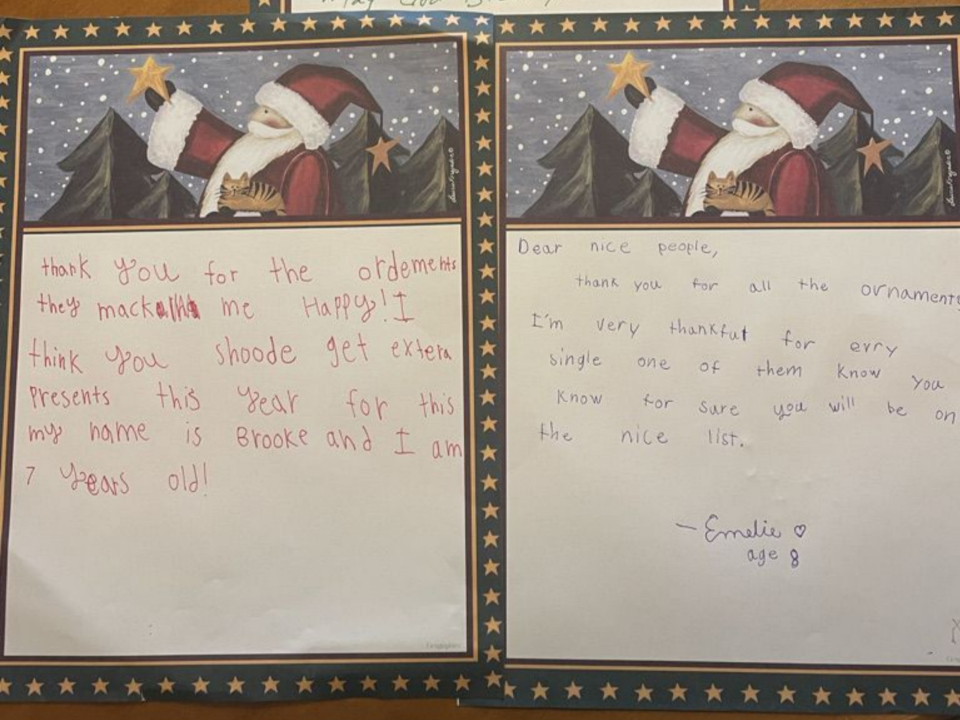 thank you for the ordements
they mack me Happy! I
think you shoode get extera
presents this year for this
my name is Brooke and I am
7 years old!
Dear nice people,
thank you for all the ornaments
I'm very thankful for erry
single one of them know you
know for sure you will be on
the nice list.
— Emelie ♡
age 8